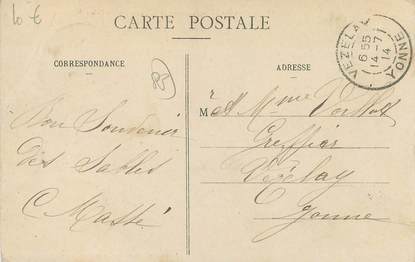 10 €
CARTE POSTALE
CORRESPONDANCE
ADRESSE
VEZELAY
6 55
14 - 7
14
YONNE
85
Bon Souvenir
des Sables
C Massé
M r et Mme
Greffier
Vézelay
Yonne